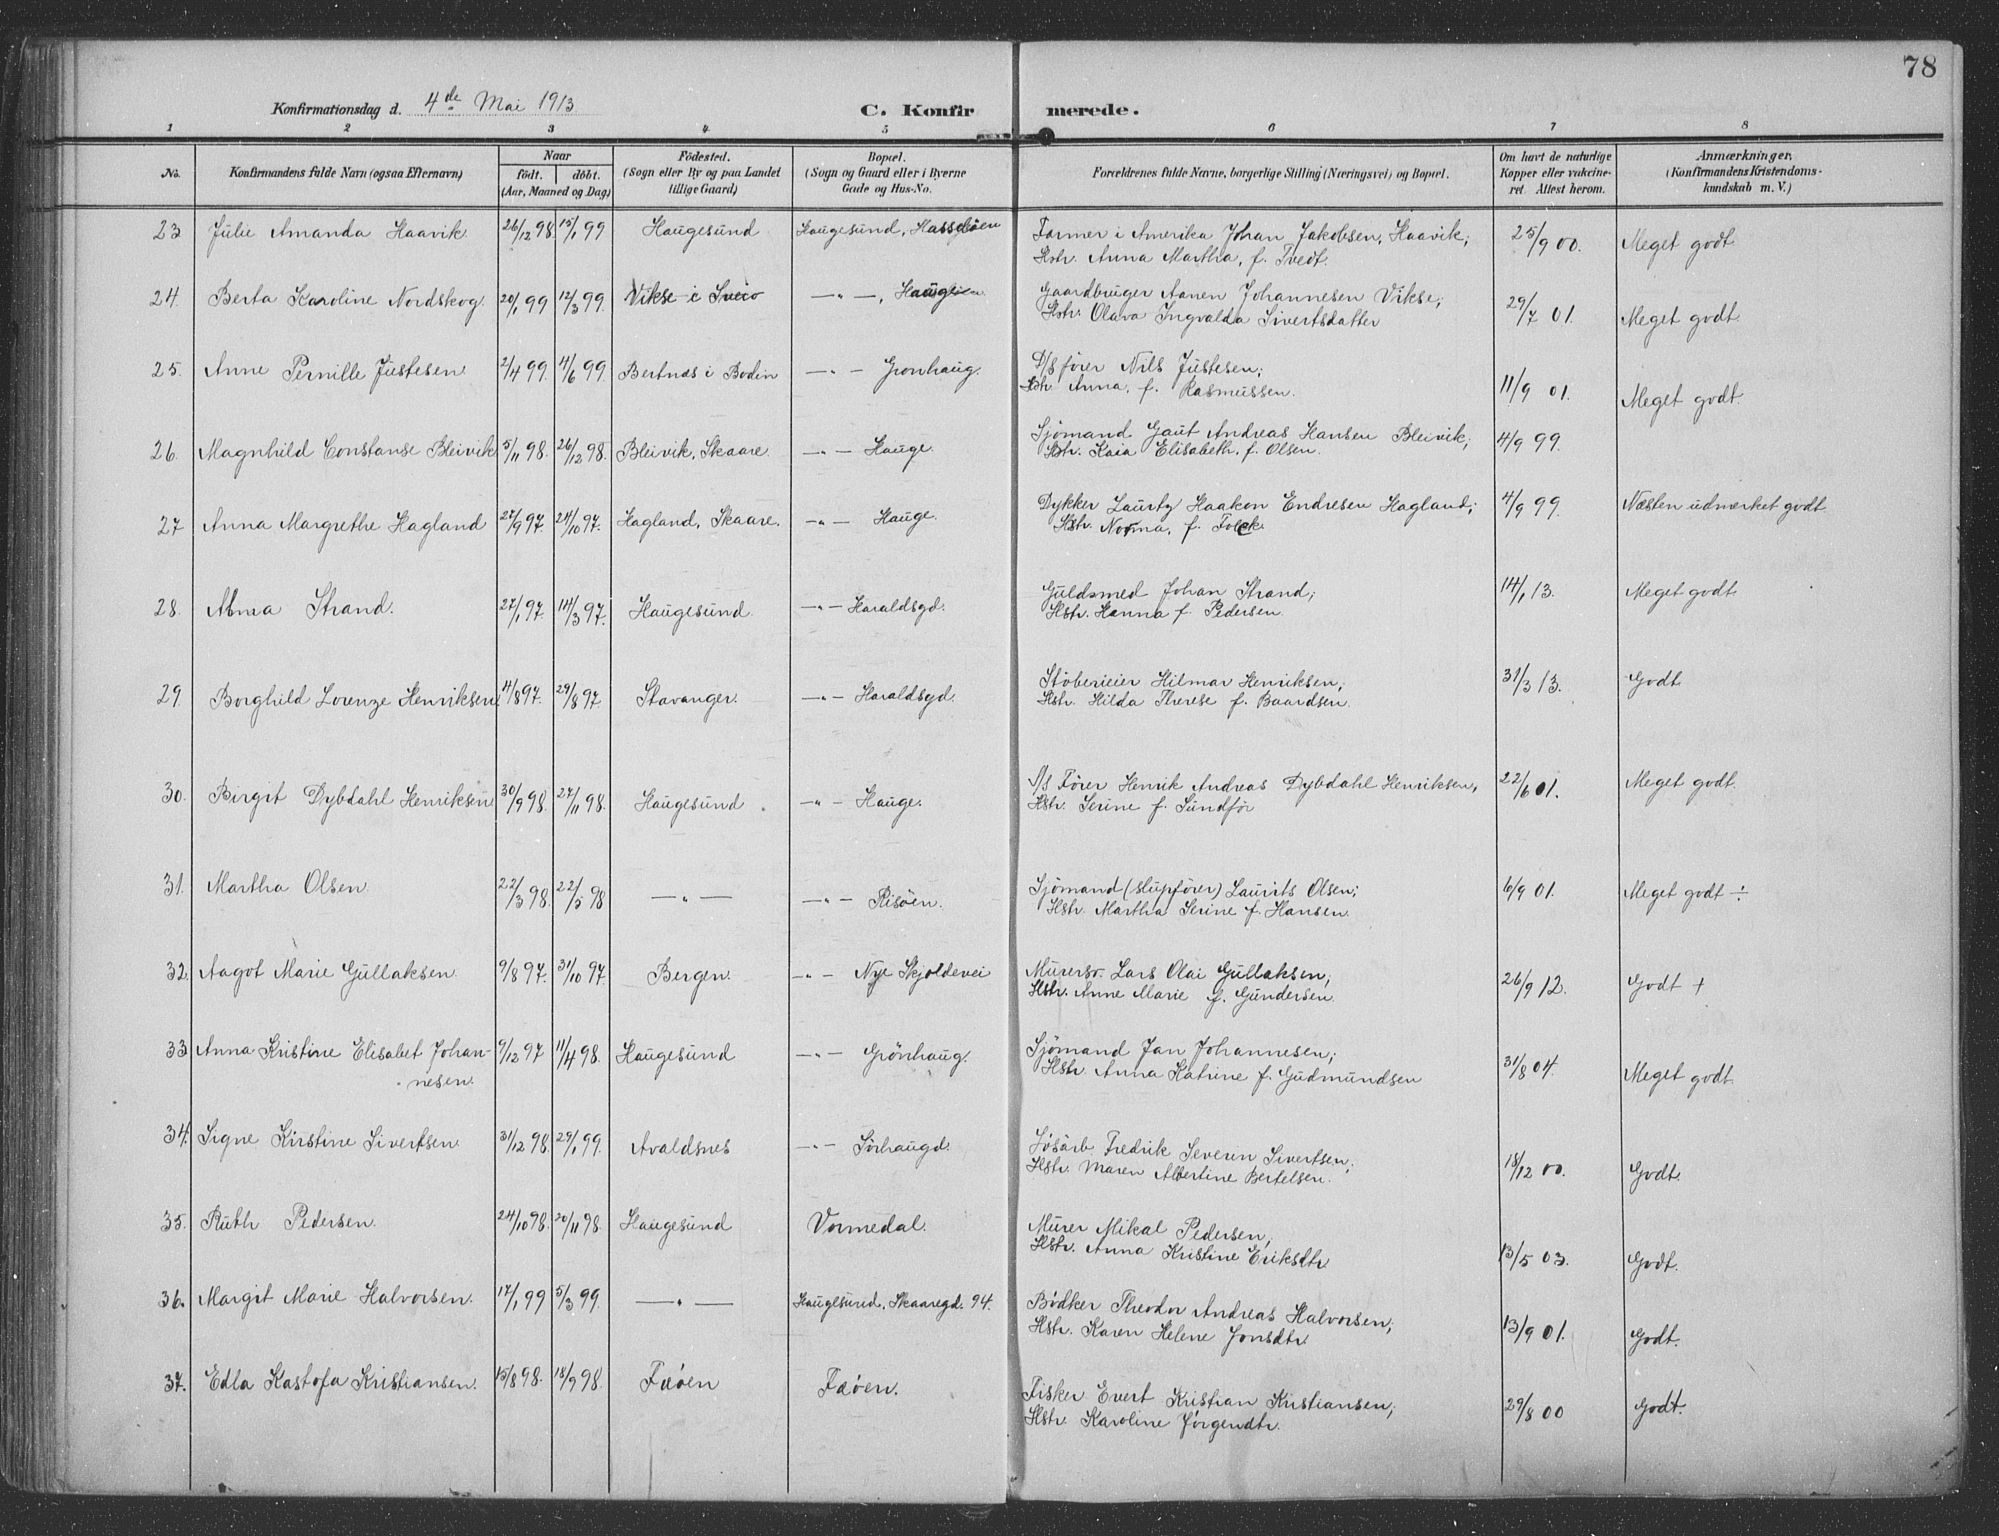 78
Konfirmationsdag d. 4de Mai 1913
C. Konfirmerede.
1 2 3 4. 5 6 7 8
No. Konfirmandens fulde Navn (ogsaa Efternavn). Naar født. døbt. (Aar, Maaned og Dag) Fødested. (Sogn eller By og paa Landet tillige Gaard) Bopæl. (Sogn og Gaard eller i Byerne Gade og Hus-No. Forældrenes fulde Navne, borgerlige Stilling (Næringsvei) og Bopæl. Om havt de naturlige Kopper eller vakcineret. Attest herom. Anmærkninger. (Konfirmandens Kristendomskundskab m. V.)
23 Julie Amanda Haavik 26/12 98. 15/1 99 Haugesund Haugesund, Hasseløen Farmer i Amerika Johan Jakobsen Haavik; 25/9 00. Meget godt
Hstr. Anna Martha, f. Tvedt.
24. Berta Karoline Nordskog 20/1 99 12/3 99. Vikse i Sveio —„—, Gaardbruger Aanen Johannesen Vikse; 29/7 01. Meget godt.
Hstr. Olava Ingvalda Sivertsdatter
25. Anne Pernille Justesen 2/4 99. 4/6 99. Bertnæs i Bodin —„— Grønhaug. D/S fører Nils Justesen; 11/9 01. Meget godt.
Hstr. Anna, f. Rasmussen.
26. Magnhild Constanse Bleivik 5/11 98. 26/12 98. Bleivik, Skaare. —„— Hauge. Sjømand Gaut Andreas Hansen Bleivik; 4/9 99.
Hstr. Kaia Elisabeth, f. Olsen.
27 Anna Margrethe Hagland 27/9 97. 24/10 97. Hagland, Skaare. —„— Hauge. Dykker Lauritz Haakon Endresen Hagland; 4/9 99. Næsten udmærket godt
Hstr. Norma, f.
28. Alma Strand. 27/1 97. 14/3 97. Haugesund. —„— Haraldsgd. Guldsmed Johan Strand; 14/1 13. Meget godt
Hstr. Hanna f. Pedersen
29. Borghild Lorenze Henriksen 4/8 97. 29/8 97 Stavanger. —„— Haraldsgd. Støberieier Hilmar Henriksen; 31/3 13. Godt
Hstr. Hilda Therese f. Baardsen.
30. Birgit Dybdahl Henriksen 30/9 98. 27/11 98. Haugesund —„— Hauge. S/S Fører Henrik Andreas Dybdahl Henriksen, 22/6 01. Meget godt.
Hstr. Serine f. Sundfør
31. Martha Olsen. 22/3 98. 22/5 98 —„— —„— Risøen. Sjømand (slupfører) Laurits Olsen; 6/9 01. Meget godt ÷
Hstr. Martha Serine f. Hansen.
32. Aagot Marie Gullaksen 9/8 97. 31/10 97. Bergen. —„— Nye Skjoldevei Murersv. Lars Olai Gullaksen; 26/9 12. Godt +
Hstr. Anne Marie f. Gundersen.
33 Anna Kristine Elisabet Johan- 9/12 97 11/4 98. Haugesund —„— Grönhaug. Sjømand Jan Johannesen; 31/8 04. Meget godt.
nesen. Hstr. Anna Katrine f. Gudmundsen
34. Signe Kirstine Sivertsen 31/12 98. 29/1 99. Avaldsnes —„— Sørhaugd. Løsarb. Fredrik Severin Sivertsen; 18/12 00. Godt.
Hstr. Maren Albertine Bertelsen.
35. Ruth Pedersen. 24/10 98. 20/11 98. Haugesund Vormedal. Murer Mikal Pedersen; 13/5 03. Godt.
Hstr. Anna Kristine Eriksdtr
36. Margit Marie Halvorsen. 17/1 99 5/3 99. —„— Haugesund, Skaaregd. 94. Bødker Theodor Andreas Halvorsen; 13/9 01. Godt.
Hstr. Karen Helene Jonsdtr.
37. Edla Kastofa Kristiansen. 15/8 98. 18/9 98. Fæøen Fæøen. Fisker Evert Kristian Kristiansen; 29/8 00 Godt.
Hstr. Karoline Jørgendtr.